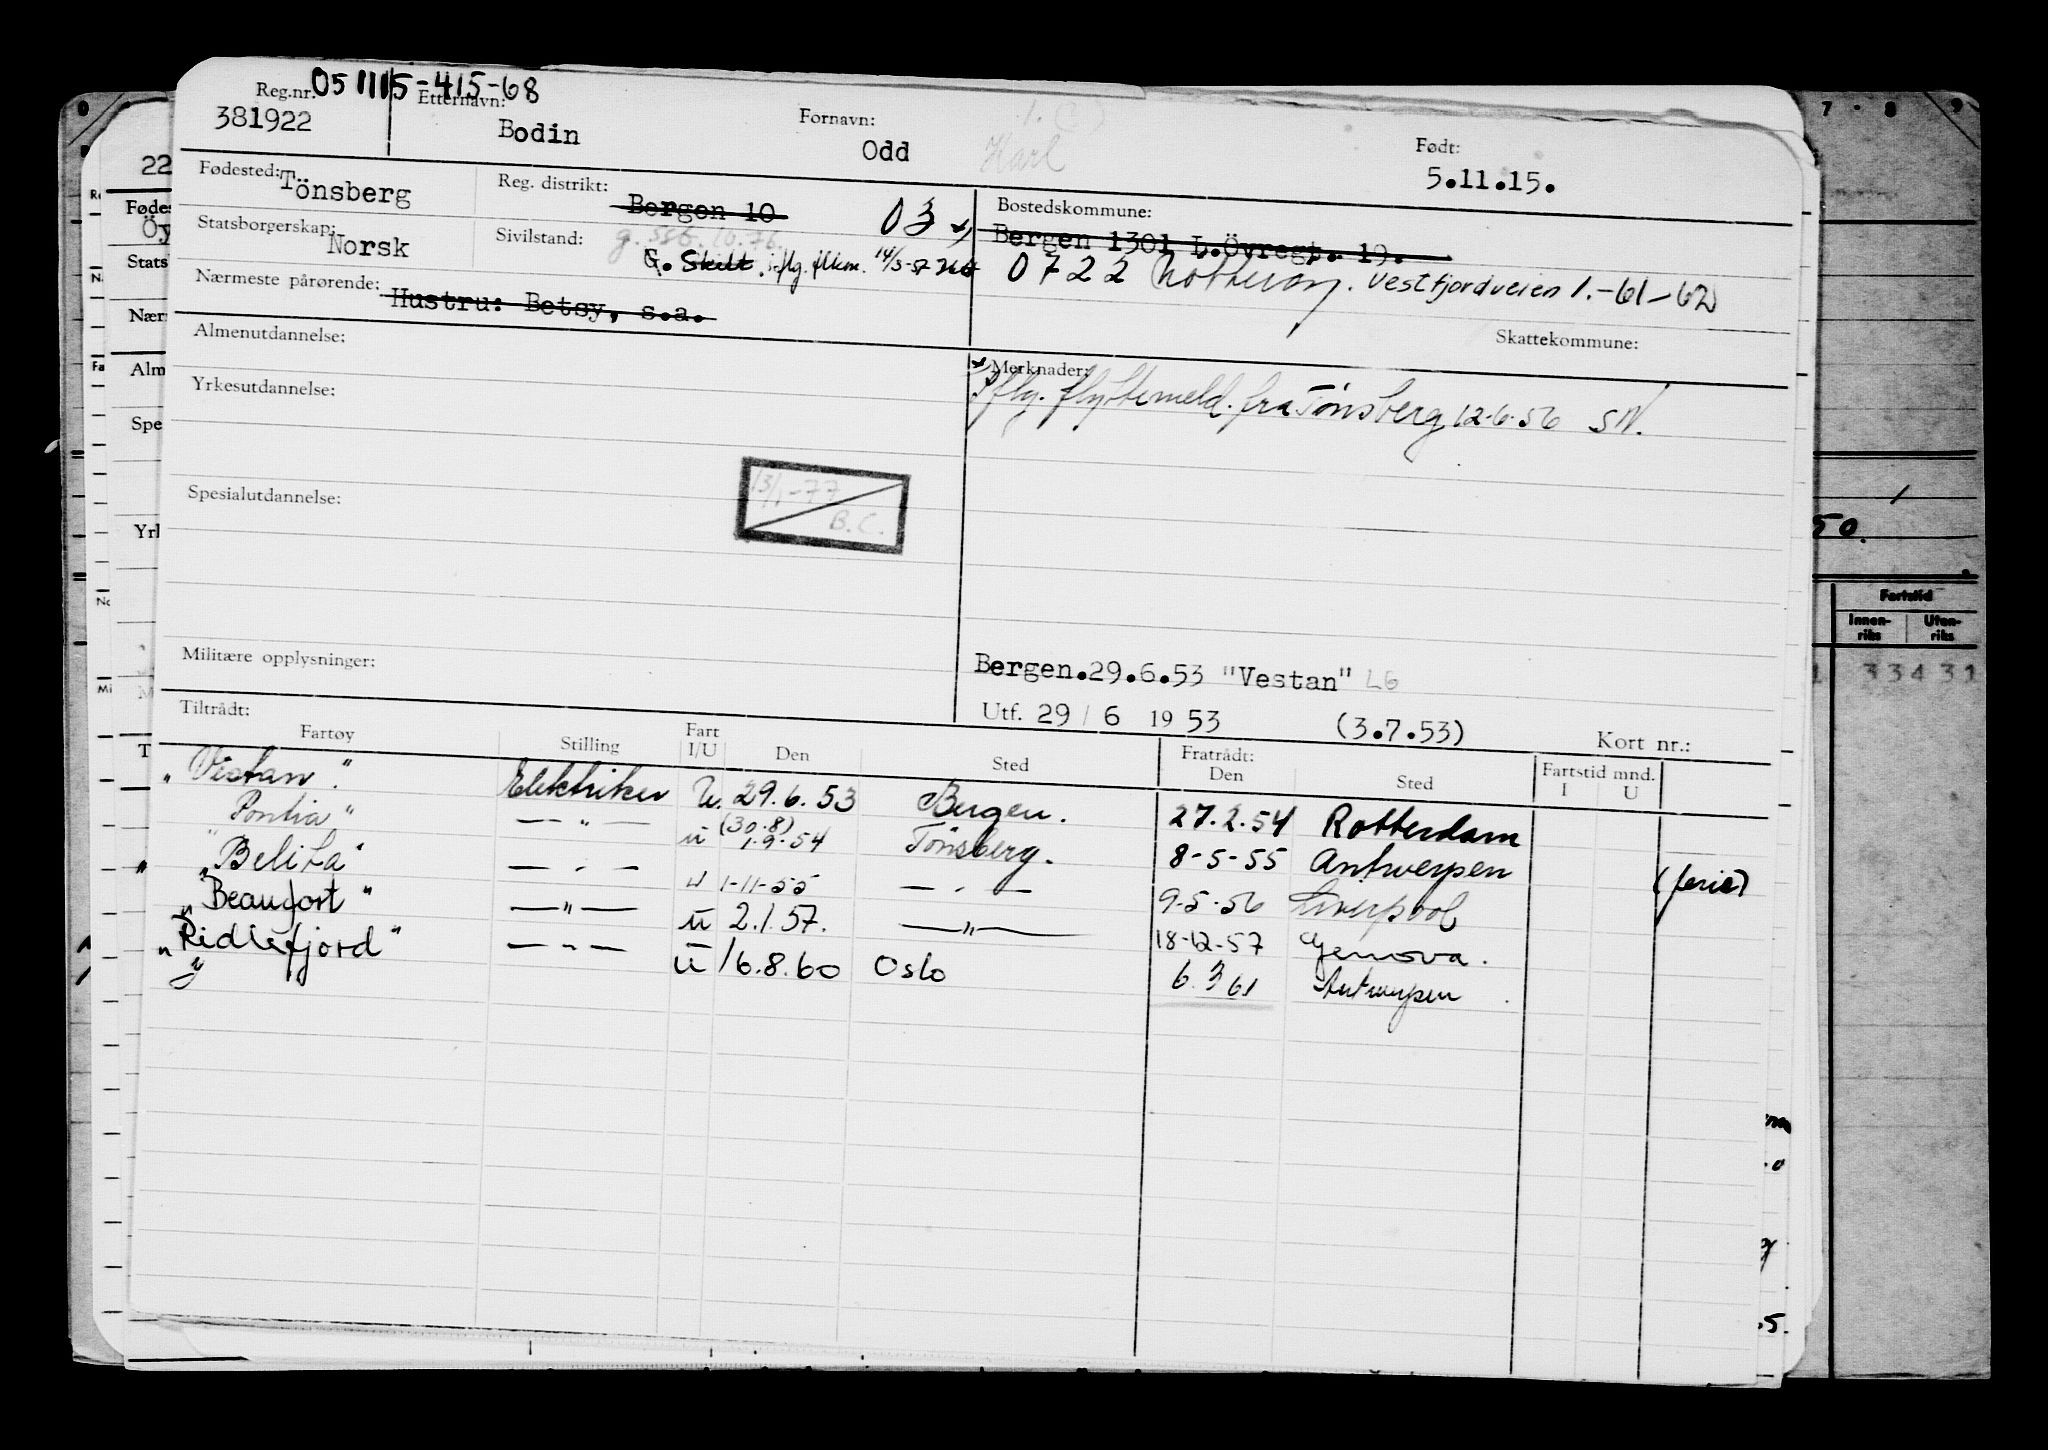 051115-415-68
Reg.nr. Etternavn: Fornavn: Født:
381922 Bodin Odd Karl 5.11.15.
Fødested: Tönsberg Reg. distrikt: Bergen 10 03 Bostedskommune:
Bergen 1301 L.Övregt. 19.
Statsborgerskap: Norsk Sivilstand: G. Skilt iflg. 0722 Nøtterøy. Vestfjordveien 1.-61-62
Nærmeste pårørende: Hustru: Betsy, s.a.
Skattekommune:
Almenutdannelse: Merknader:
iflg. flyttemeld. fra Tönsberg 12-6-56 SN.
Yrkesutdannelse:
Spesialutdannelse: 13/1-77
B.C.
Militære opplysninger: Bergen.29.6.53 "Vestan" LG
Utf. 29/6 1953 (3.7.53) Kort nr.:
Tiltrådt: Fratrådt: Fartstid mnd.
Fartøy Stilling Fart I/U Den Sted Den Sted I U
"Vestan". Elektriker U. 29.6.53 Bergen. 27.2.54 Rotterdam
"Pontia" —"— u (30.8) 1.9.54 Tönsberg. 8-5-55 Antwerpen (ferie)
"Belita" —"— u 1-11-55 —"— 9-5-56 Liverpool
"Beaufort" —"— u 2.1.57. —"— 18-12-57 Genova.
"Ridlefjord" —"— u 16.8.60 Oslo 6.3 61 Antwerpen
22
Fartstid
Innen-riks Uten-riks
33431
50.
7 8 9